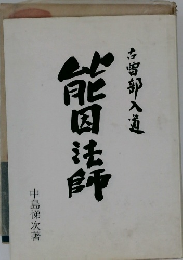 古曽部入道
能因法師
中島僙次著